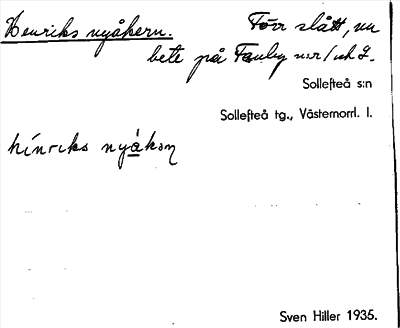 Henriks nyåkern. Förr slått, nu
bete på Tanby
Sollefteå s:n
Sollefteå tg., Västernorrl. l.
hínriks nyákon
Sven Hiller 1935.